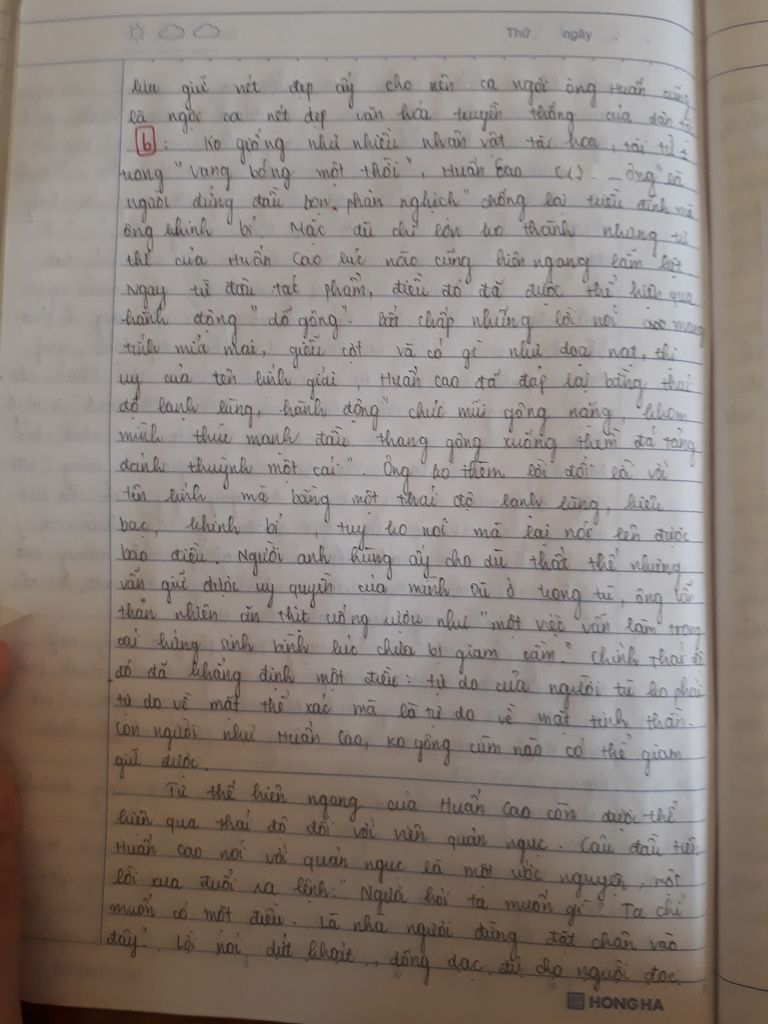 Thứ ngày
lưu giữ nét đẹp ấy cho nên ca ngợi ông Huấn cũng
là ngợi ca nét đẹp văn hóa truyền thống của dân tộc
b: Ko giống như nhiều nhân vật tài hoa, tài tử #
trong "vang bóng một thời", Huấn Cao (1) _ ông "là
người đứng đầu bọn phản nghịch" chống lại triều đình mà
ông khinh bỉ. Mặc dù chí lớn ko thành nhưng tư
thế của Huấn Cao lúc nào cũng hiên ngang lẫm liệt
Ngay từ đầu tác phẩm, điều đó đã được thể hiện qua
hành động "dỗ gông". Bất chấp những lời nói mang
tính mỉa mai, giễu cợt và có gì như dọa nạt, thị
uy của tên lính giải, Huấn Cao đã đáp lại bằng thái
độ lạnh lùng, hành động "chúc mũi gông nặng, khom
mình thúc mạnh đầu thang gông xuống thềm đá tảng
đánh thuỳnh một cái". Ông ko thèm lời đôi lời với
tên lính mà bằng một thái độ lạnh lùng, kiêu
bạc, khinh bỉ, tuy ko nói mà lại nói lên được
bao điều. Người anh hùng ấy cho dù thất thế nhưng
vẫn giữ được uy quyền của mình Dù ở trong tù, ông vẫn
thản nhiên ăn thịt uống rượu như "một việc vẫn làm trong
cái hứng sinh bình lúc chưa bị giam cầm." Chính thái độ
đó đã khẳng định một điều: tự do của người tù ko phải
tự do về mặt thể xác mà là tự do về mặt tinh thần.
Con người như Huấn Cao, ko gông cùm nào có thể giam
giữ được.
Tư thế hiên ngang của Huấn Cao còn được thể
hiện qua thái độ đối với viên quản ngục. Câu đầu tiên
Huấn Cao nói với quản ngục là một ước nguyện, một
lời xua đuổi ra lệnh: "Ngươi hỏi ta muốn gì? Ta chỉ
muốn có một điều. Là nhà ngươi đừng đặt chân vào
đây". Lời nói dứt khoát, dõng dạc đủ cho người đọc
HONG HA